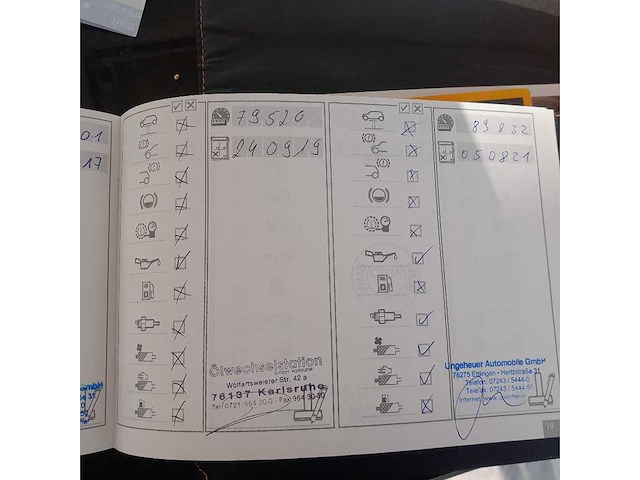 01
17
79520
240919
Ölwechselstation
GmbH Karlsruhe
Wolfartsweierer Str. 42 a
76137 Karlsruhe
Tel 0721/964 30-0 · Fax 964 30-50
89832
050821
Ungeheuer Automobile GmbH
76275 Ettlingen · Hertzstraße 31
Telefon: 07243 / 5444-0
Telefax: 07243 / 5444-50
Internet:
GmbH
19